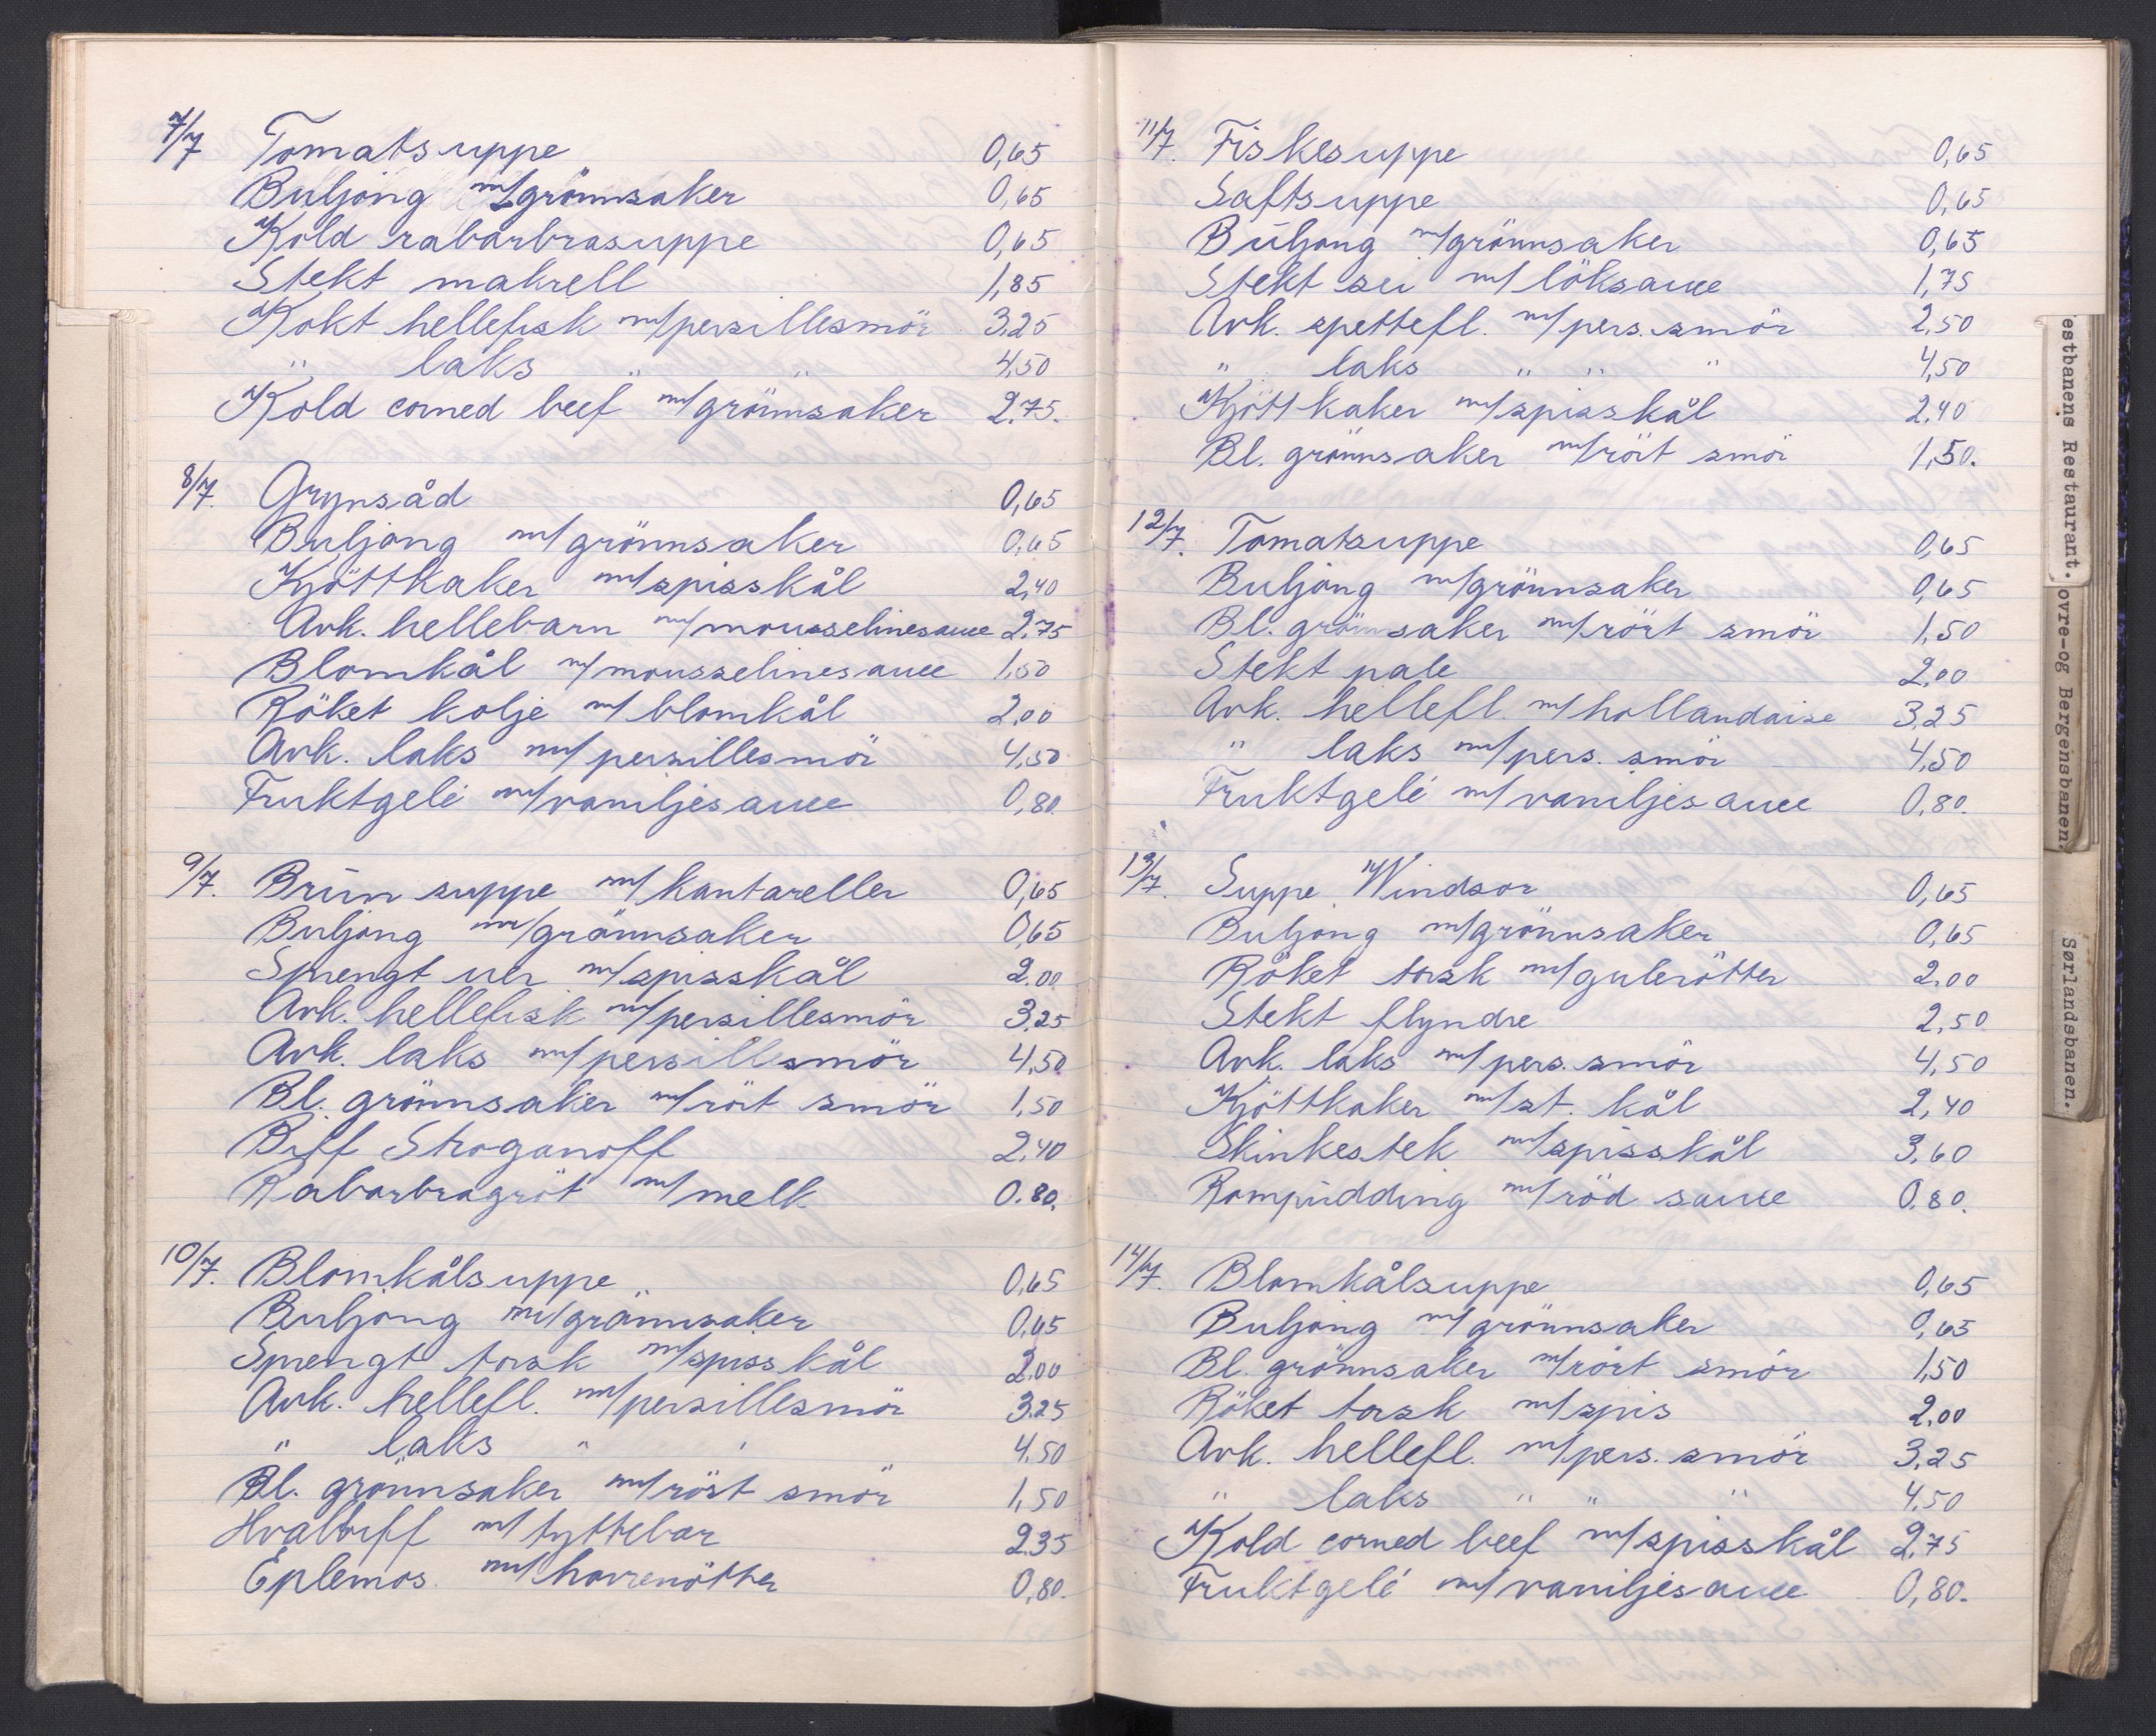 7/7 Tomatsuppe 0,65
Buljong m/grönnsaker 0,65
Kold rabarbrasuppe 0,65
Stekt makrell 1,85
Kokt hellefisk m/persillesmör 3.25
" laks " " 4,50
Kold corned beef m/grönnsaker 2.75.
8/7. Grynsåd 0,65
Buljong m/grönnsaker 0,65
Kjöttkaker m/spisskål 2,40
Avk. hellebarn m/mousselinesauce 2.75
Blomkål m/mousselinesauce 1,50
Röket kolje m/blomkål 2,00
Avk. laks m/persillesmör 4,50
Fruktgelé m/vaniljesauce 0,80.
9/7. Brun suppe m/kantareller 0,65
Buljong m/grönnsaker 0,65
Sprengt uer m/spisskål 2.00
Avk. hellefisk m/persillesmör 3.25
Avk. laks m/persillesmör 4,50
Bl. grönnsaker m/rört smör 1,50
Biff Stroganoff 2.40
Rabarbragröt m/melk 0.80.
10/7. Blomkålsuppe 0,65
Buljong m/grönnsaker 0,65
Sprengt torsk m/spisskål 2.00
Avk. hellefl. m/persillesmör 3.25
" laks " " 4.50
Bl. grönnsaker m/rört smör 1,50
Hvalbiff m/tyttebær 2.35
Eplemos m/havrenötter 0,80.
11/7. Fiskesuppe 0,65
Saftsuppe 0,65
Buljong m/grönnsaker 0,65
Stekt sei m/löksauce 1,75
Avk. spettefl. m/pers. smör 2,50
" laks " " " 4,50
Kjöttkaker m/spisskål 2.40
Bl. grönnsaker m/rört smör 1,50.
12/7. Tomatsuppe 0,65
Buljong m/grönnsaker 0,65
Bl. grönnsaker m/rört smör 1,50
Stekt pale 2,00
Avk. hellefl. m/hollandaise 3,25
" laks m/pers. smör 4,50
Fruktgelé m/vaniljesauce 0,80.
13/7. Suppe Windsor 0,65
Buljong m/grönnsaker 0,65
Röket torsk m/gulerötter 2.00
Stekt flyndre 2,50
Avk. laks m/pers. smör 4,50
Kjöttkaker m/st. kål 2,40
Skinkestek m/spisskål 3,60
Rompudding m/röd sauce 0.80.
14/7. Blomkålsuppe 0,65
Buljong m/grönnsaker 0,65
Bl. grönnsaker m/rört smör 1,50
Röket torsk m/spis 2.00
Avk. hellefl. m/pers. smör 3,25
" laks " " " 4.50
Kold corned beef m/spisskål 2,75
Fruktgelé m/vaniljesauce 0,80.
estbanens Restaurant.
ovre-og Bergensbanen.
Sørlandsbanen.